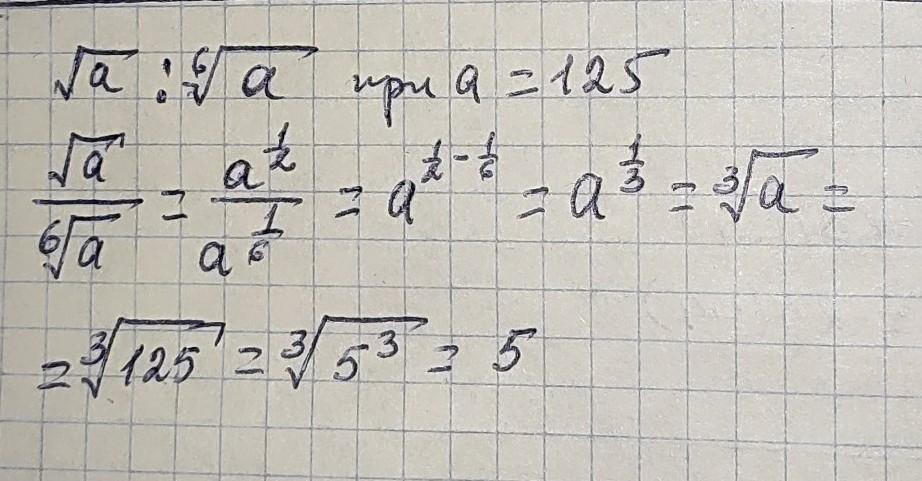 √a : ⁶√a при a = 125
√a / ⁶√a = a^(1/2) / a^(1/6) = a^(1/2 - 1/6) = a^(1/3) = ³√a =
= ³√125 = ³√5³ = 5